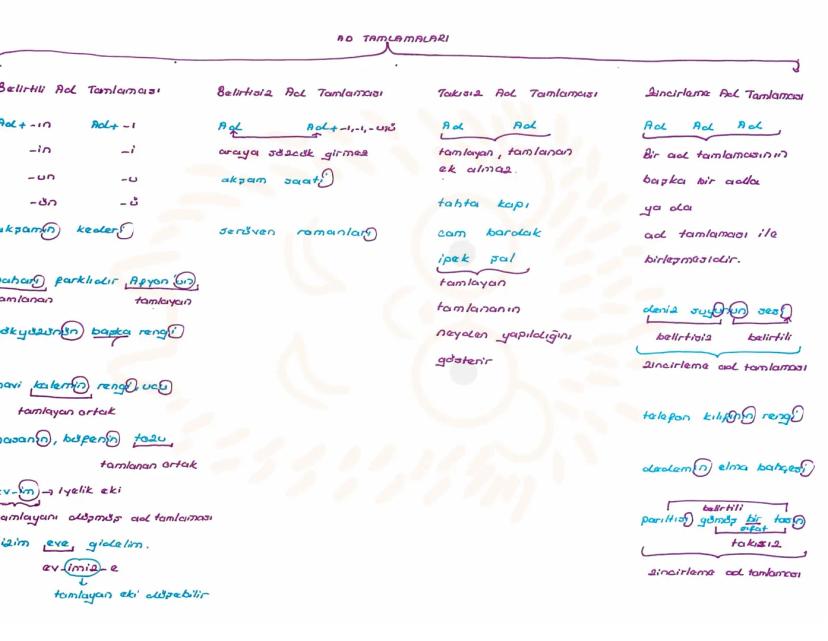 AD TAMLAMALARI
Belirtili Ad Tamlaması
Ad+ -ın Ad+ -ı
-in -i
-un -u
-ün -ü
akşamın kederi
baharı farklıdır Afyon'un
tamlanan tamlayan
gökyüzünün başka rengi
mavi kalemin rengi, ucu
tamlayan ortak
masanın, büfenin tozu
tamlanan ortak
ev-im → iyelik eki
tamlayanı düşmüş ad tamlaması
bizim eve gidelim.
ev-imiz-e
tamlayan eki düşebilir
Belirtisiz Ad Tamlaması
Ad Ad+-ı,-i,-u,ü
araya sözcük girmez
akşam saati
serüven romanları
Takısız Ad Tamlaması
Ad Ad
tamlayan, tamlanan
ek almaz.
tahta kapı
cam bardak
ipek şal
tamlayan
tamlananın
neyden yapıldığını
gösterir
Zincirleme Ad Tamlaması
Ad Ad Ad
Bir ad tamlamasının
başka bir adla
ya da
ad tamlaması ile
birleşmesidir.
deniz suyunun sesi
belirtisiz belirtili
zincirleme ad tamlaması
telefon kılıfının rengi
dedemin elma bahçesi
belirtili
parıltısı gümüş bir tasın
sıfat
takısız
zincirleme ad tamlaması